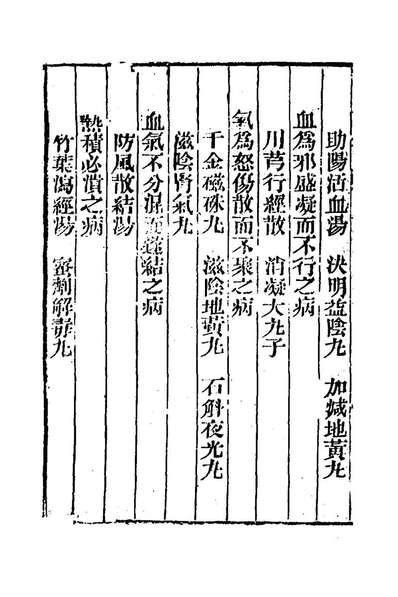 助陽活血湯　決明益陰丸　加減地黃丸
血為邪盛凝而不行之病
川芎行經散　消凝大丸子
氣為怒傷散而不聚之病
千金磁硃丸　滋陰地黃丸　石斛夜光丸
滋陰腎氣丸
血氣不分混而遂結之病
防風散結湯
熱積必潰之病
竹葉瀉經湯　蜜劑解毒丸